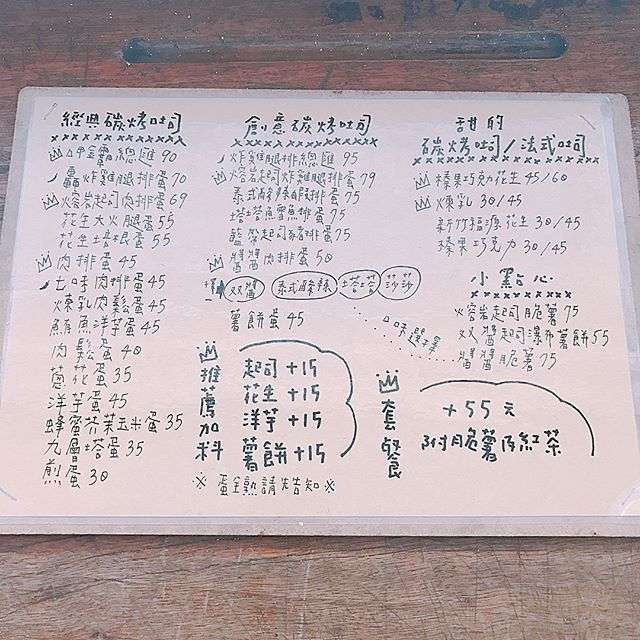 經典碳烤吐司
總匯 90
轟炸雞腿排蛋 70
熔岩起司肉排蛋 69
花生大火腿蛋 55
花生培根蛋 55
肉排蛋 45
七味肉排蛋 45
煉乳肉鬆蛋 45
鮪魚洋芋蛋 45
肉鬆蛋 40
蔥花蛋 35
洋芋蛋 45
蜂蜜芥茉玉米蛋 35
九層塔蛋 35
煎蛋 30
創意碳烤吐司
炸雞腿排總匯 95
熔岩起司炸雞腿排蛋 79
泰式酸辣蝦排蛋 75
塔塔魚鱈魚排蛋 75
藍帶起司豬排蛋 75
醬醬肉排蛋 50
双醬 泰式酸辣 塔塔 莎莎
口味選擇
薯餅蛋 45
推薦加料
起司 +15
花生 +15
洋芋 +15
薯餅 +15
※ 蛋全熟請告知 ※
甜的
碳烤吐司/法式吐司
榛果巧克力花生 45/60
煉乳 30/45
新竹福源花生 30/45
榛果巧克力 30/45
小點心
熔岩起司脆薯 75
双醬起司瀑布薯餅 55
醬醬脆薯 75
套餐
+55 元
附脆薯&紅茶